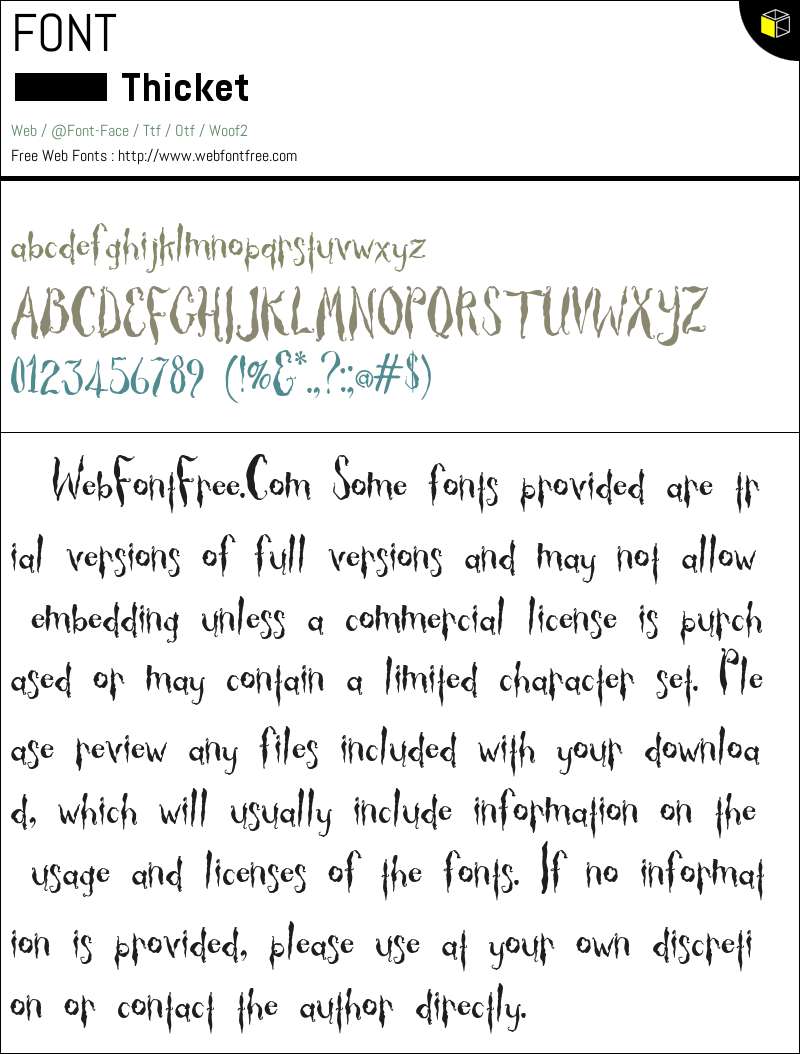 FONT
Thicket
Web / @Font-Face / Ttf / Otf / Woof2
Free Web Fonts : http://www.webfontfree.com
abcdefghijklmnopqrstuvwxyz
ABCDEFGHIJKLMNOPQRSTUVWXYZ
0123456789 (!%&*.,?:;@#$)
WebFontFree.Com Some fonts provided are tr
ial versions of full versions and may not allow
embedding unless a commercial license is purch
ased or may contain a limited character set. Ple
ase review any files included with your downloa
d, which will usually include information on the
usage and licenses of the fonts. If no informat
ion is provided, please use at your own discreti
on or contact the author directly.